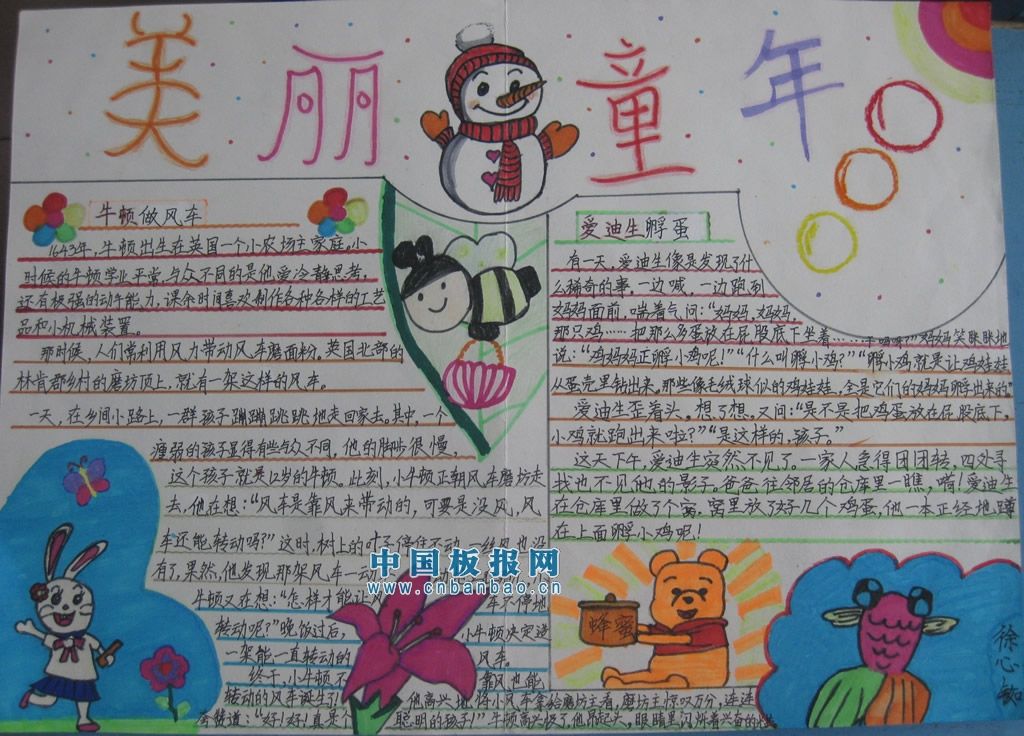 美丽童年
牛顿做风车
1643年,牛顿出生在英国一个小农场主家庭。小
时候的牛顿学业平常,与众不同的是他爱冷静思考,
还有极强的动手能力,课余时间喜欢制作各种各样的工艺
品和小机械装置。
那时候,人们常利用风力带动风车磨面粉。英国北部的
林肯郡乡村的磨坊顶上,就有一架这样的风车。
一天,在乡间小路上,一群孩子蹦蹦跳跳地走回家去。其中,一个
瘦弱的孩子显得有些与众不同,他的脚步很慢,
这个孩子就是12岁的牛顿。此刻,小牛顿正朝风车磨坊走
去,他在想:“风车是靠风来带动的,可要是没风,风
车还能转动吗?”这时,树上的叶子停住不动,一丝风也没
有了,果然,他发现,那架风车一动
牛顿又在想:“怎样才能让风 车不停地
转动呢?”晚饭过后, 小牛顿决定造
一架能一直转动的 风车。
终于,小牛顿不 靠风也能
转动的风车诞生了! 他高兴地将小风车拿给磨坊主看,磨坊主惊叹万分,连连
道:“好!好!真是个 聪明的孩子!”牛顿高兴极了,他昂起头,眼睛里闪烁着兴奋的
爱迪生孵蛋
有一天,爱迪生像是发现了什
么稀奇的事,一边喊,一边跑到
妈妈面前,喘着气问:“妈妈,妈妈,
那只鸡……把那么多蛋放在屁股底下坐着…… 妈妈笑眯眯地
说:“鸡妈妈正孵小鸡呢!”“什么叫孵小鸡?”“孵小鸡就是让鸡娃娃
从蛋壳里钻出来,那些像毛绒球似的鸡娃娃,全是它们的妈妈孵出来的”
爱迪生歪着头,想了想,又问:“是不是把鸡蛋放在屁股底下,
小鸡就跑出来啦?”“是这样的,孩子。”
这天下午,爱迪生突然不见了。一家人急得团团转,四处寻
找也不见他的影子。爸爸往邻居的仓库里一瞧,嗬!爱迪生
在仓库里做了个窝,窝里放了好几个鸡蛋,他一本正经地蹲
在上面孵小鸡呢!
蜂蜜
徐心敏
中国板报网
www.cnbanbao.cn